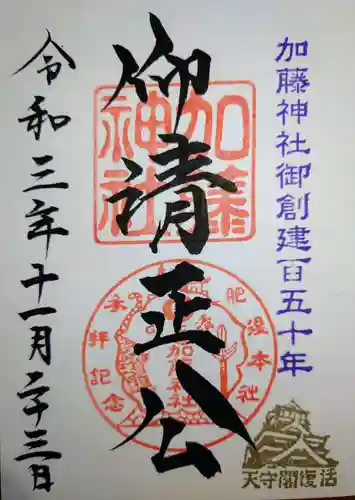 加藤神社御創建百五十年
加藤神社
仰清正公
肥後本社
参拝記念
加藤神社
令和三年十一月二十三日
天守閣復活